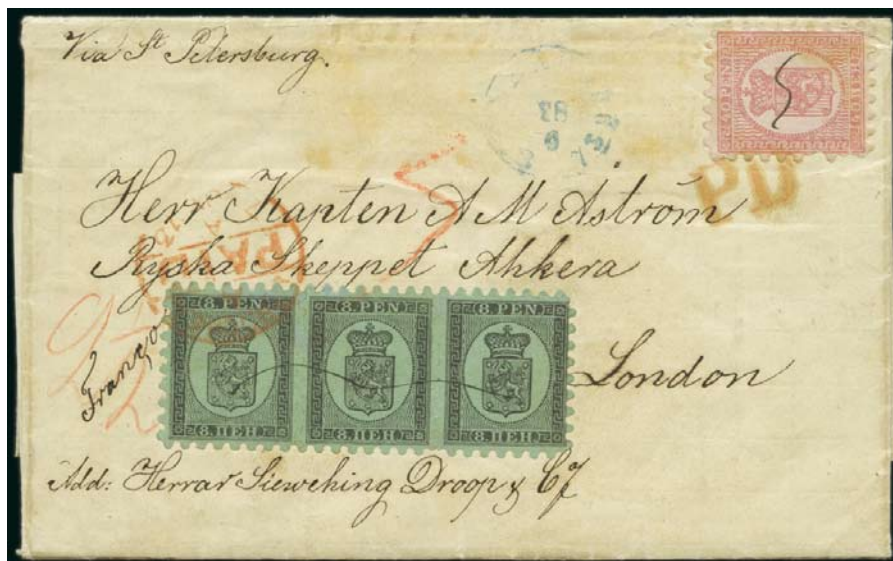 Via St Petersburg.
40 PEN
PD
Herr Kapten A M Aström
Ryska Skeppet Ahkera
PAID
8. PEN. 8. PEN. 8. PEN.
8. ПЕН. 8. ПЕН. 8. ПЕН.
Franco
London
Add: Herrar Siewehing Droop & Co